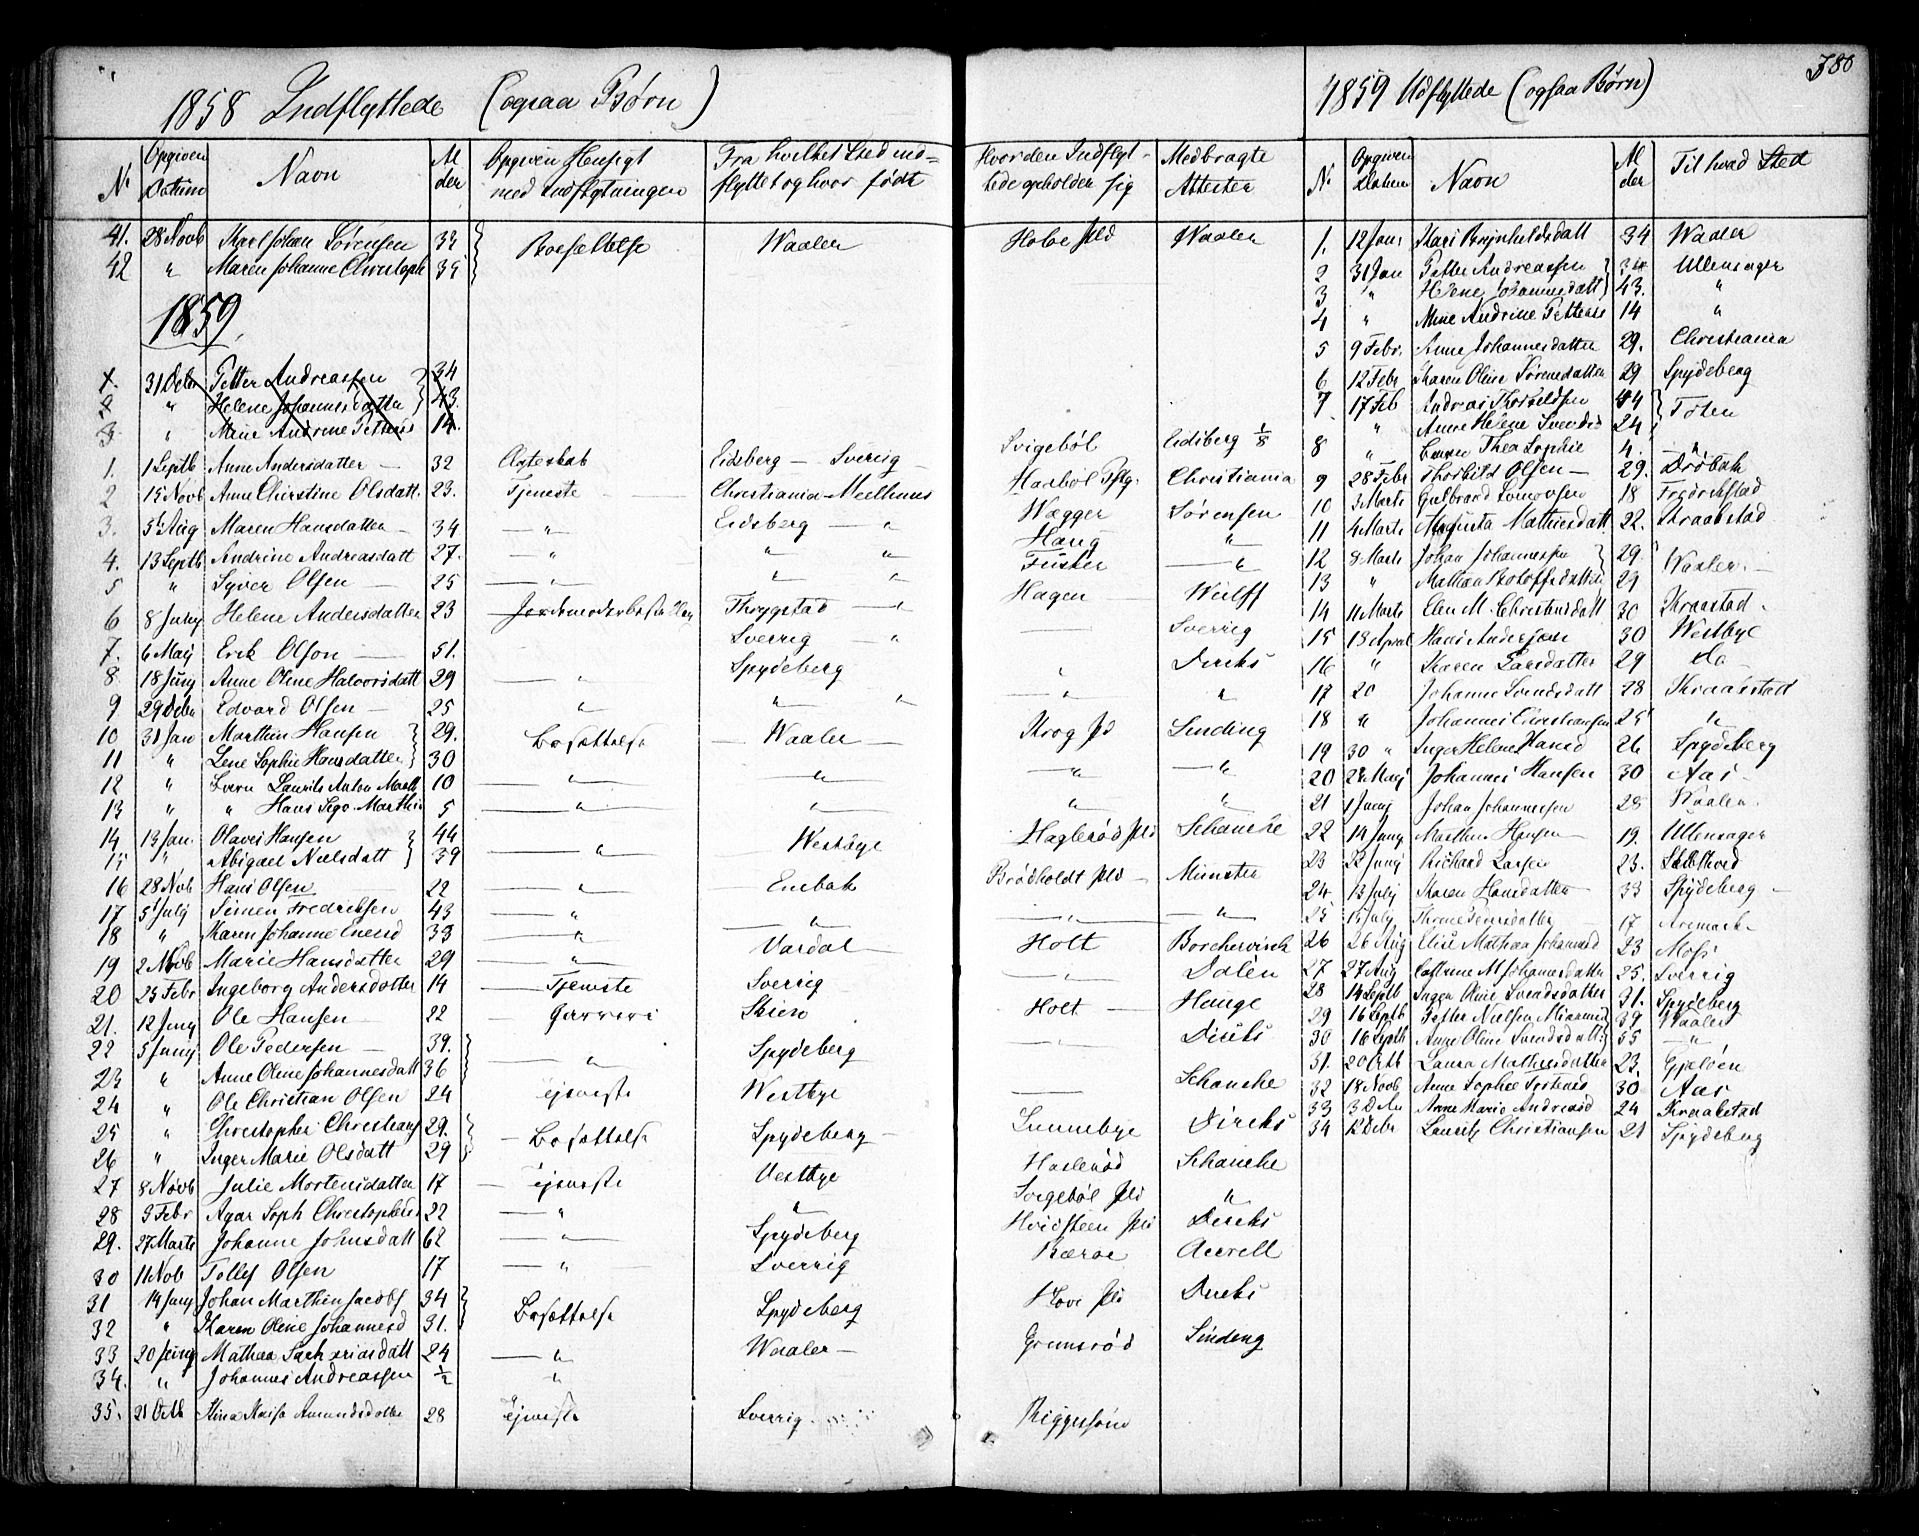 380
1858 Indflyttede (ogsaa Børn)
No Opgiven Datum Navn Alder Opgiven Hensigt med Indflytningen Fra hvilket Sted indflyttet og hvor født Hvor den Indflyttede opholder sig Medbragte Attester
41. 28 Novb Karl Johan Sørensen 33 Bosettelse Waaler Hobøe Waaler
42 " Maren Johanne Christoph 35
1859
1. 31 Debr Petter Andreassen 34
2 " Helene Johannesdatter 43.
3 " Mine Andrine Petters 14
1. 1 Septb Anne Andersdatter 32 Egteskab Eidsberg — Sverrig Svigebøl Eidsberg 1/8
2 15 Novb Anne Christine Olsdatt. 23. Tjeneste Christiania Christiania
3. 5 Aug Maren Hansdatter 34 " Eidsberg " Wægger Sørensen
4. 13 Septb Andrine Andreasdatt 27. " " " Haug "
5 " Syver Olsen 25 " " " "
6 8 Juny Helene Andersdatter 23 Thrygstad " Hagen Wulff
7. 6 Maj Erik Olsen 51. Sverrig " Sverrig
8 18 Juny Anne Oline Halvorsdatt 29 " Spydeberg " Diricks
9 29 Debr Edvard Olsen 25 " " " " "
10 31 Jan Marthin Hansen 29. Bosættelse Waaler Krog Sinding
11 " Lene Sophie Hansdatter 30
12 " Børn Laurits Anton Marth 10 " " " "
13 " " Hans Marthin 5 " " " "
14 13 Jan. Olaves Hansen 44 " Westbye Haglerød Schancke
15 " Abigael Nielsdatt 39
16 28 Nov Hans Olsen 22 " Enebak Brødholdt Münster
17 5 July Simen Fredriksen 43 " " " "
18 " Karen Johanne 33 " Vardal Holt Borchgrevink
19 2 Novb Marie Hansdatter 29 "
20 25 Febr Ingeborg Andersdatter 14 Tjeneste Sverrig " Dalén
21. 12 Juny Ole Hansen 22 Garveri Skien Holt Hauge
22 5 Juny Ole Pedersen 39. " Spydeberg " Diricks
23 " Anne Oline Johannesdatt 36
24 " Ole Christian Olsen 24 Tjeneste Westbye — Schancke
25 " Christopher Christians 29. Bosættelse Spydeberg Sunnebye Diricks
26 " Inger Marie Olsdatt 29
27 8 Novb Julie Mortensdatter 17 Tjeneste Vestbye Haslerød Schancke
28 3 Febr Agar Soph Christophers 22 " " Svigebøl "
29. 27 Marts Johanne Johnsdatt 62 " Spydeberg Hvidsteen Diricks
30 11 Nob Tollef Olsen 17 " Sverrig Bærøe
31 14 Juny Johan Marthin Jacobs 34 Bosættelse Spydeberg Hove Diricks
32 " Karen Oline Johannesd 31.
33 20 Juny Mathea Sachariasdatt 24 " Waaler Gremsrød Sinding
34. " Johannes Andreassen 1/2 "
35. 21 Octb Stina Kaisa Amundsdatter 28 Tjeneste Sverrig
1859 Udflyttede (ogsaa Børn)
No Opgiven Datum Navn Alder Til hvad Sted
1. 12 Jan Kari Brynhildsdatt 34 Waaler
2 31 Jan Petter Andreassen 34 Ullensager
3 " Helene Johannesdatt 43. "
4 " Mine Andrine Petters 14 "
5 9 Febr. Anne Johannesdatter 29. Christiania
6 12 Febr Karen Oline Sørensdatter 29 Spydeberg
7 17 Feb Andreas Thorkeldsen 44 Toten
" Anne Helene Svendsd 24
8 " Thea Sophie 4. "
9 28 Febr Thorkild Olsen 29. Drøbak
10 3 Marts Gulbrand 18 Fredrikstad
11 4 Marts Augusta Mathiesdatt 22. Kraakstad
12 8 Marts Johan Johannessen 29. Waaler
13 " Mathea 29
14 11 Marts Elen M. Christensdatt 30 Kraakstad
15 18 April Hans Andersen 30 Westbye
16 " Karen Larsdatter 29 do
17 20 Johanne Svendsdatt 28 Kraakstad
18 " Johannes Christiansen 25 "
19 30 " Inger Helene Hansd 26 Spydeberg
20 28 Maj Johannes Hansen 30 Aas
21 1 Juny Johan Johannesen 28 Waaler
22 14 Juny Marthin Hansen 19. Ullensager
23 22 Juny Richard Larsen 23.
24. 13 July Karen Hansdatter 33 Spydeberg
25 15 July 17 Aremark
26 26 Aug Elise Mathea Johannesd 23 Moss
27 27 Aug Cathrine M Johannesdatter 25. Sverrig
28 14 Septb Inger Oline Svendsdatter 31. Spydeberg
29 16 Septb Petter Nielsen 39 Waaler
30 16 Septb Anne Oline Svendsdatt 35 "
31. 20 Octb Laura Mathiesdatter 23. Gjeløen
32 18 Novb Anne Sophie 30 Aas
33 3 Debr Anne Marie Andreasd 24 Kraakstad
34 12 Debr Laurits Christiansen 21 Spydeberg